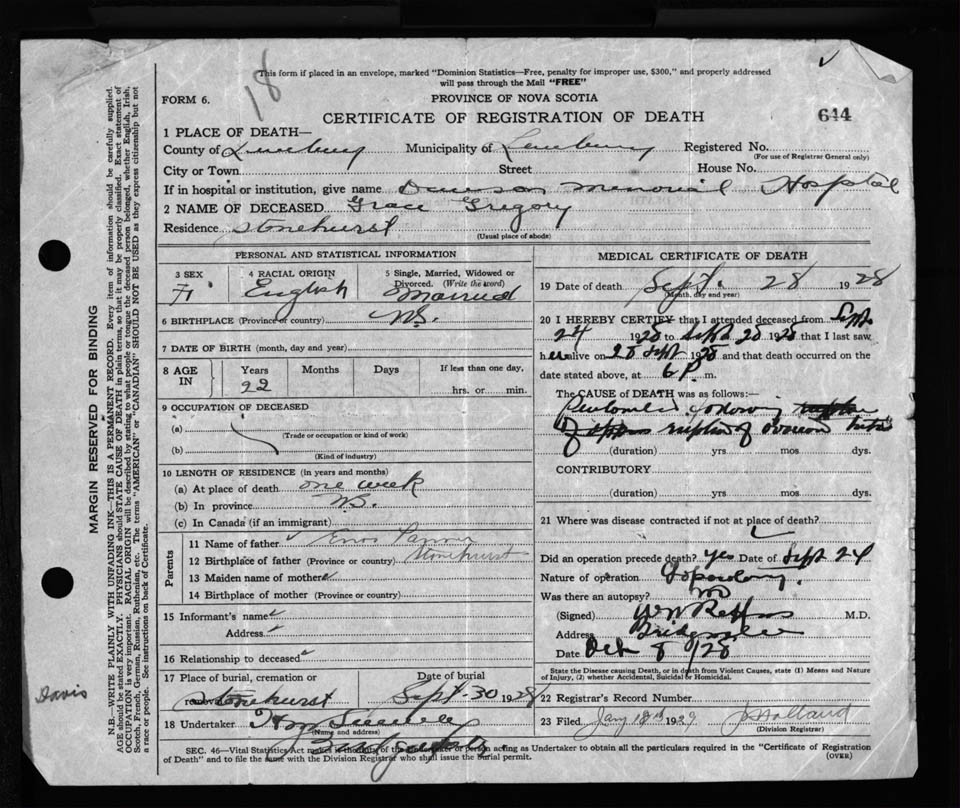 18
This form if placed in an envelope, marked "Dominion Statistics—Free, penalty for improper use, $300," and properly addressed
will pass through the Mail "FREE"
FORM 6.
PROVINCE OF NOVA SCOTIA
CERTIFICATE OF REGISTRATION OF DEATH
644
1 PLACE OF DEATH—
County of Lunenburg Municipality of Lunenburg Registered No.
(For use of Registrar General only)
City or Town Street House No.
If in hospital or institution, give name Dawson Memorial Hospital
2 NAME OF DECEASED Grace Gregory
Residence Stonehurst
(Usual place of abode)
PERSONAL AND STATISTICAL INFORMATION
3 SEX 4 RACIAL ORIGIN 5 Single, Married, Widowed or
Divorced. (Write the word)
F. English Married
6 BIRTHPLACE (Province or country) N.S.
7 DATE OF BIRTH (month, day and year)
8 AGE IN Years Months Days If less than one day,
22 hrs. or min.
9 OCCUPATION OF DECEASED
(a)
(Trade or occupation or kind of work)
(b)
(Kind of industry)
10 LENGTH OF RESIDENCE (in years and months)
(a) At place of death one week
(b) In province N.S.
(c) In Canada (if an immigrant)
Parents
11 Name of father Enos
12 Birthplace of father (Province or country) Stonehurst
13 Maiden name of mother
14 Birthplace of mother (Province or country)
15 Informant's name
Address
16 Relationship to deceased
17 Place of burial, cremation or Date of burial
Stonehurst Sept. 30 1928
18 Undertaker
(Name and address)
MEDICAL CERTIFICATE OF DEATH
19 Date of death Sept. 28 1928
(Month, day and year)
20 I HEREBY CERTIFY that I attended deceased from Sept
24 1928 to Sept 28 1928 that I last saw
her alive on 28 Sept 1928 and that death occurred on the
date stated above, at 6 P. m.
The CAUSE of DEATH was as follows:—
rupture of ovarian
(duration) yrs mos dys.
CONTRIBUTORY
(duration) yrs. mos dys.
21 Where was disease contracted if not at place of death?
Did an operation precede death? yes Date of Sept 24
Nature of operation
Was there an autopsy? no
(Signed) M.D.
Address Bridgewater
Date Oct 8 /28
State the Disease causing Death, or in death from Violent Causes, state (1) Means and Nature
of Injury, (2) whether Accidental, Suicidal or Homicidal.
22 Registrar's Record Number
23 Filed Jany 18th 1929 Holland
(Division Registrar)
SEC. 46—Vital Statistics Act makes it the duty of the Undertaker or person acting as Undertaker to obtain all the particulars required in the "Certificate of Registration
of Death" and to file the same with the Division Registrar who shall issue the burial permit.
(OVER)
MARGIN RESERVED FOR BINDING
N.B.—WRITE PLAINLY WITH UNFADING INK—THIS IS A PERMANENT RECORD. Every item of information should be carefully supplied.
AGE should be stated EXACTLY. PHYSICIANS should STATE CAUSE OF DEATH in plain terms, so that it may be properly classified. Exact statement of
OCCUPATION is very important. RACIAL ORIGIN will be described by stating to what people or tongue the deceased person belonged, whether English, Irish,
Scotch, French, German, Russian, Ruthenian, etc. The terms "AMERICAN" or "CANADIAN" SHOULD NOT BE USED as they express citizenship but not
a race or people. See instructions on back of Certificate.
Davis